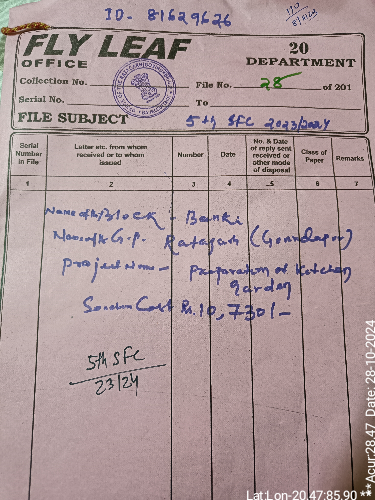 ID- 81629626
FLY LEAF
OFFICE
20
DEPARTMENT
Collection No.
File No. 28 of 201
Serial No.
To
FILE SUBJECT 5th SFC 2023/2024
Serial Number in File
Letter etc. from whom received or to whom issued
Number
Date
No. & Date of reply sent received or other mode of disposal
Class of Paper
Remarks
1 2 3 4 5 6 7
Name of the Block - Banki
Name of the G.P. Ratagarh
Project Name - Preparation of Kitchen
garden
Sanction Cost Rs. 10,730/-
5th SFC
23/24
Lat:Lon-20.47:85.90 ***Acur:28.47 Date: 28-10-2024